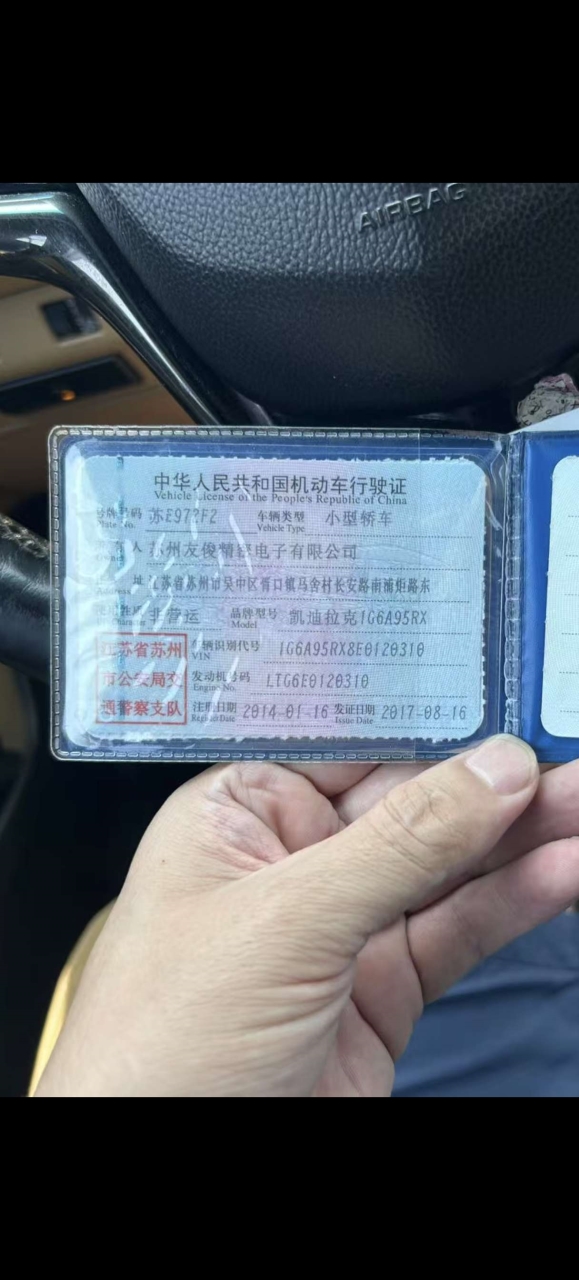 AIRBAG
中华人民共和国机动车行驶证
Vehicle License of the People's Republic of China
号牌号码 车辆类型 小型轿车
Plate No. Vehicle Type
人 苏州友俊精密电子有限公司
址 江苏省苏州市吴中区胥口镇马舍村长安路南浦炬路东
Address
非营运 品牌型号 凯迪拉克1G6A95RX
Character Model
江苏省苏州 车辆识别代号 1G6A95RX8E0120310
VIN
市公安局交 发动机号码 LTG6E0120310
Engine No.
通警察支队 注册日期 2014-01-16 发证日期 2017-08-16
Register Date Issue Date